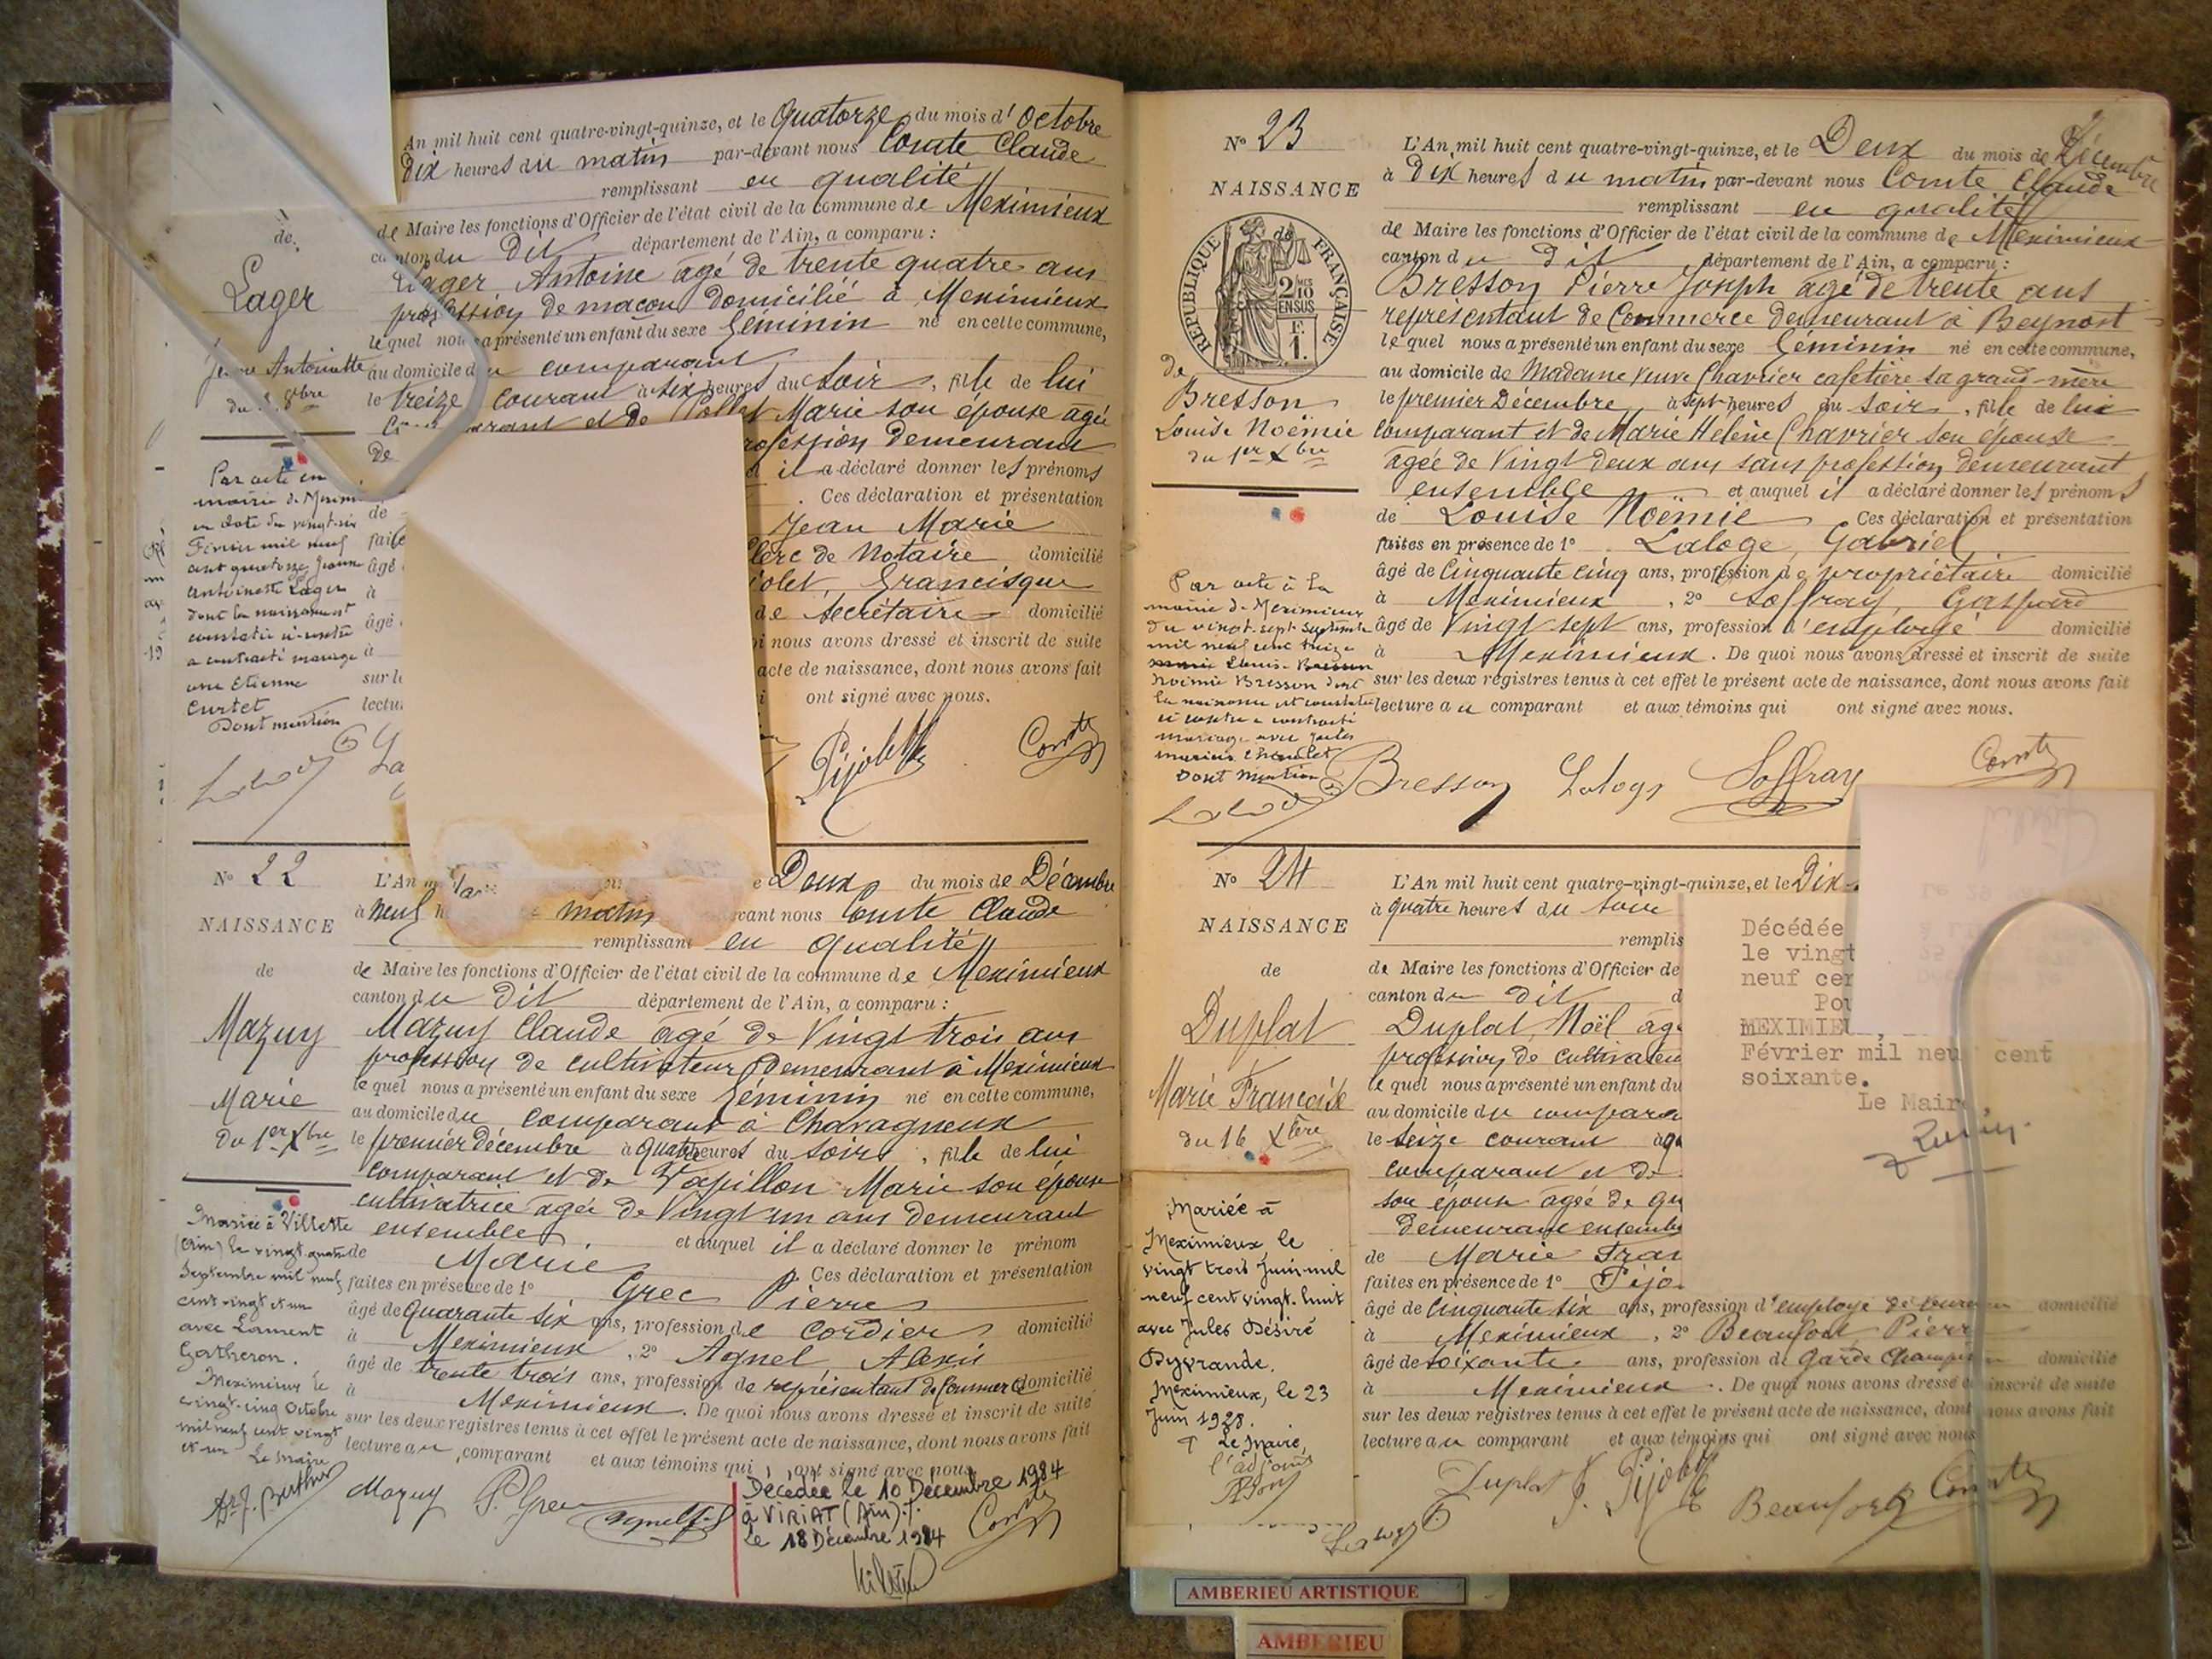 An mil huit cent quatre-vingt-quinze, et le Quatorze du mois d'Octobre
Dix heures du matin par-devant nous Comte Claude
remplissant en qualité
de Maire les fonctions d'Officier de l'état civil de la commune de Meximieux
canton du Dit département de l'Ain, a comparu :
Lager Antoine âgé de trente quatre ans
profession de maçon domicilié à Meximieux
lequel nous a présenté un enfant du sexe féminin né en cette commune,
au domicile du comparant
le treize courant à six heures du soir, fille de lui
et de Marie son épouse âgée
profession demeurant
il a déclaré donner les prénoms
Ces déclaration et présentation
Jean Marie
clerc de Notaire domicilié
Francisque
de Secrétaire domicilié
nous avons dressé et inscrit de suite
acte de naissance, dont nous avons fait
ont signé avec nous.
Comte
de
Lager
Antoinette
Par acte en
mairie de
en date du vingt-six
Février mil neuf
cent quatorze Jeanne
Antoinette Lager
dont la naissance est
constatée ci-contre
a contracté mariage
avec Etienne
Curtet
Dont mention
N° 22
NAISSANCE
de
Mazuy
Marie
du 1er Xbre
L'An Deux du mois de Décembre
à Neuf matin vant nous Comte Claude
remplissant en qualité
de Maire les fonctions d'Officier de l'état civil de la commune de Meximieux
canton du Dit département de l'Ain, a comparu :
Mazuy Claude âgé de Vingt trois ans
profession de cultivateur demeurant à Meximieux
lequel nous a présenté un enfant du sexe féminin né en cette commune,
au domicile du comparant à Chavagneux
le premier Décembre à quatre heures du soir, fille de lui
comparant et de Papillon Marie son épouse
cultivatrice âgée de Vingt un ans demeurant
ensemble et auquel il a déclaré donner le prénom
de Marie Ces déclaration et présentation
faites en présence de 1° Grec Pierre
âgé de quarante six ans, profession de cordier domicilié
à Meximieux, 2° Agnel Alexis
âgé de trente trois ans, profession de représentant de commerce domicilié
à Meximieux. De quoi nous avons dressé et inscrit de suite
sur les deux registres tenus à cet effet le présent acte de naissance, dont nous avons fait
lecture au comparant et aux témoins qui ont signé avec nous.
Mariée à Villette
(Ain) le vingt-quatre
Septembre mil neuf
cent vingt et un
avec Laurent
Gotheron.
Meximieux le
vingt-cinq Octobre
mil neuf cent vingt
et un Le Maire
Mazuy P. Grec Comte
Décédée le 10 Décembre 1984
à VIRIAT (Ain).
Le 18 Décembre 1984
N° 23
NAISSANCE
RÉPUBLIQUE FRANÇAISE
2/10 EN SUS
F.
1.
de
Bresson
Louise Noëmie
du 1er Xbre
L'An mil huit cent quatre-vingt-quinze, et le Deux du mois de Décembre
à Dix heures du matin par-devant nous Comte Claude
remplissant en qualité
de Maire les fonctions d'Officier de l'état civil de la commune de Meximieux
canton du dit département de l'Ain, a comparu :
Bresson Pierre Joseph âgé de trente ans
représentant de Commerce demeurant à Beynost
lequel nous a présenté un enfant du sexe féminin né en cette commune,
au domicile de Madame Veuve Chavrier cafetière sa grand-mère
le premier Décembre à sept heures du soir, fille de lui
comparant et de Marie Hélène Chavrier son épouse
âgée de Vingt deux ans sans profession demeurant
ensemble et auquel il a déclaré donner les prénoms
de Louise Noëmie Ces déclaration et présentation
faites en présence de 1° Laloge, Gabriel
âgé de Cinquante cinq ans, profession de propriétaire domicilié
à Meximieux, 2° Soffray, Gaspard
âgé de Vingt sept ans, profession d'employé domicilié
à Meximieux. De quoi nous avons dressé et inscrit de suite
sur les deux registres tenus à cet effet le présent acte de naissance, dont nous avons fait
lecture au comparant et aux témoins qui ont signé avec nous.
Par acte à la
mairie de Meximieux
du vingt-sept Septembre
mil neuf cent treize
Noémie Bresson dont
la naissance est constatée
ci contre a contracté
mariage avec
Dont mention
Bresson Laloge Soffray Comte
N° 24
NAISSANCE
de
Duplat
Marie Françoise
du 16 Xbre
L'An mil huit cent quatre-vingt-quinze, et le Dix
à quatre heures du soir
remplis
de Maire les fonctions d'Officier de
canton du dit d
Duplat, Noël âg
profession de cultivateu
lequel nous a présenté un enfant du
au domicile du compara
le seize courant à
comparant et de
son épouse âgée de qu
demeurant ensemb
de Marie Fran
faites en présence de 1° Pijo
âgé de Cinquante six ans, profession d'employé de domicilié
à Meximieux, 2° Beaufort Pierr
âgé de soixante ans, profession de garde champêtre domicilié
à Meximieux. De quoi nous avons dressé et inscrit de suite
sur les deux registres tenus à cet effet le présent acte de naissance, dont nous avons fait
lecture au comparant et aux témoins qui ont signé avec nous
Duplat Beaufort Comte
Mariée à
Meximieux, le
vingt trois Juin mil
neuf cent vingt-huit
avec Jules Désiré
Dyvrande.
Meximieux, le 23
Juin 1928.
Le Maire,
l'adjoint
Décédée
le vingt
neuf cen
Pou
MEXIMIEU
Février mil neuf cent
soixante.
Le Maire,
AMBERIEU ARTISTIQUE
AMBERIEU